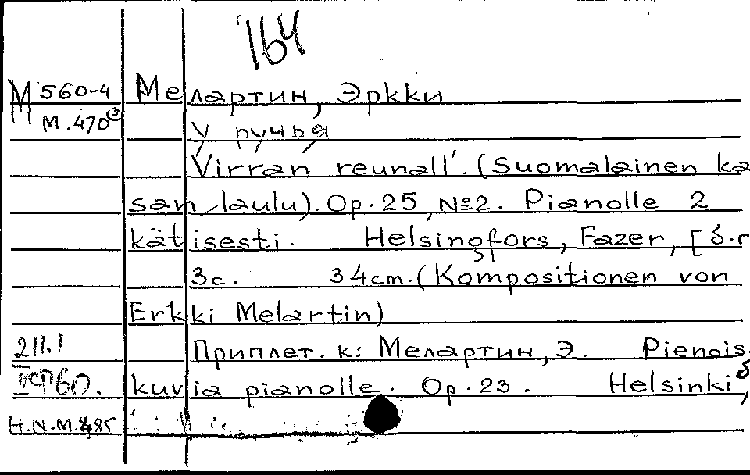 164
М 560-4 Мелартин, Эркки
М.470 У ручья
Virran reunall'. (Suomalainen ka
san laulu). Op. 25, №2. Pianolle 2
kätisesti. Helsingfors, Fazer, [б.г
3с. 34cm. (Kompositionen von
Erkki Melartin)
211.1 Приплет. к: Мелартин, Э. Pienois
kuvia pianolle. Op. 23. Helsinki,
Н.N.М.